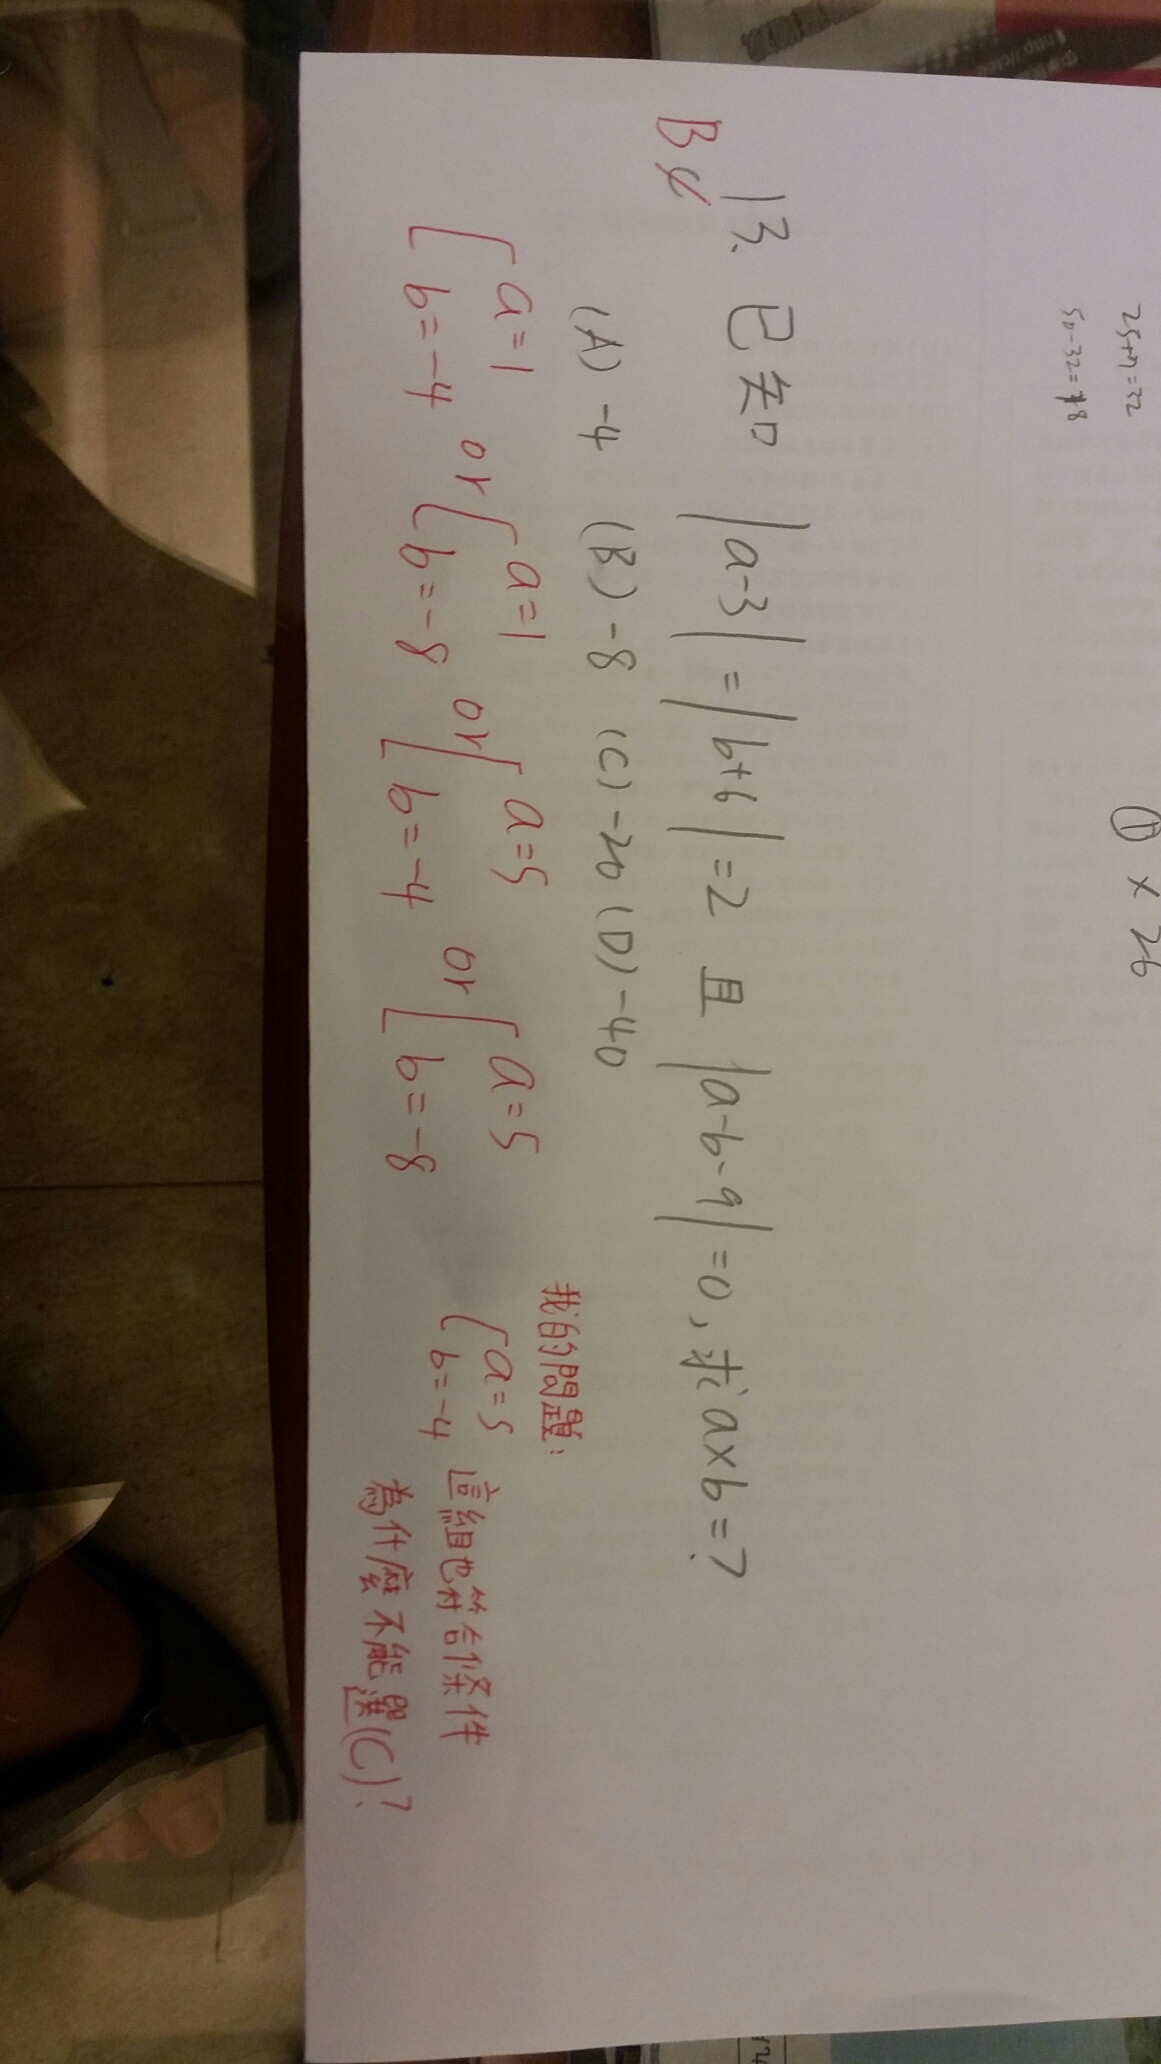 2s+n=32
① × 26
B
13. 已知 |a-3|=|b+6|=2 且 |a-b-9|=0, 求 a×b=?
(A) -4 (B) -8 (C) -20 (D) -40
{a=1 b=-4 or {a=1 b=-8 or {a=5 b=-4 or {a=5 b=-8
我的問題:
{a=5 b=-4 這組也符合條件
為什麼不能選(C)?
http://c